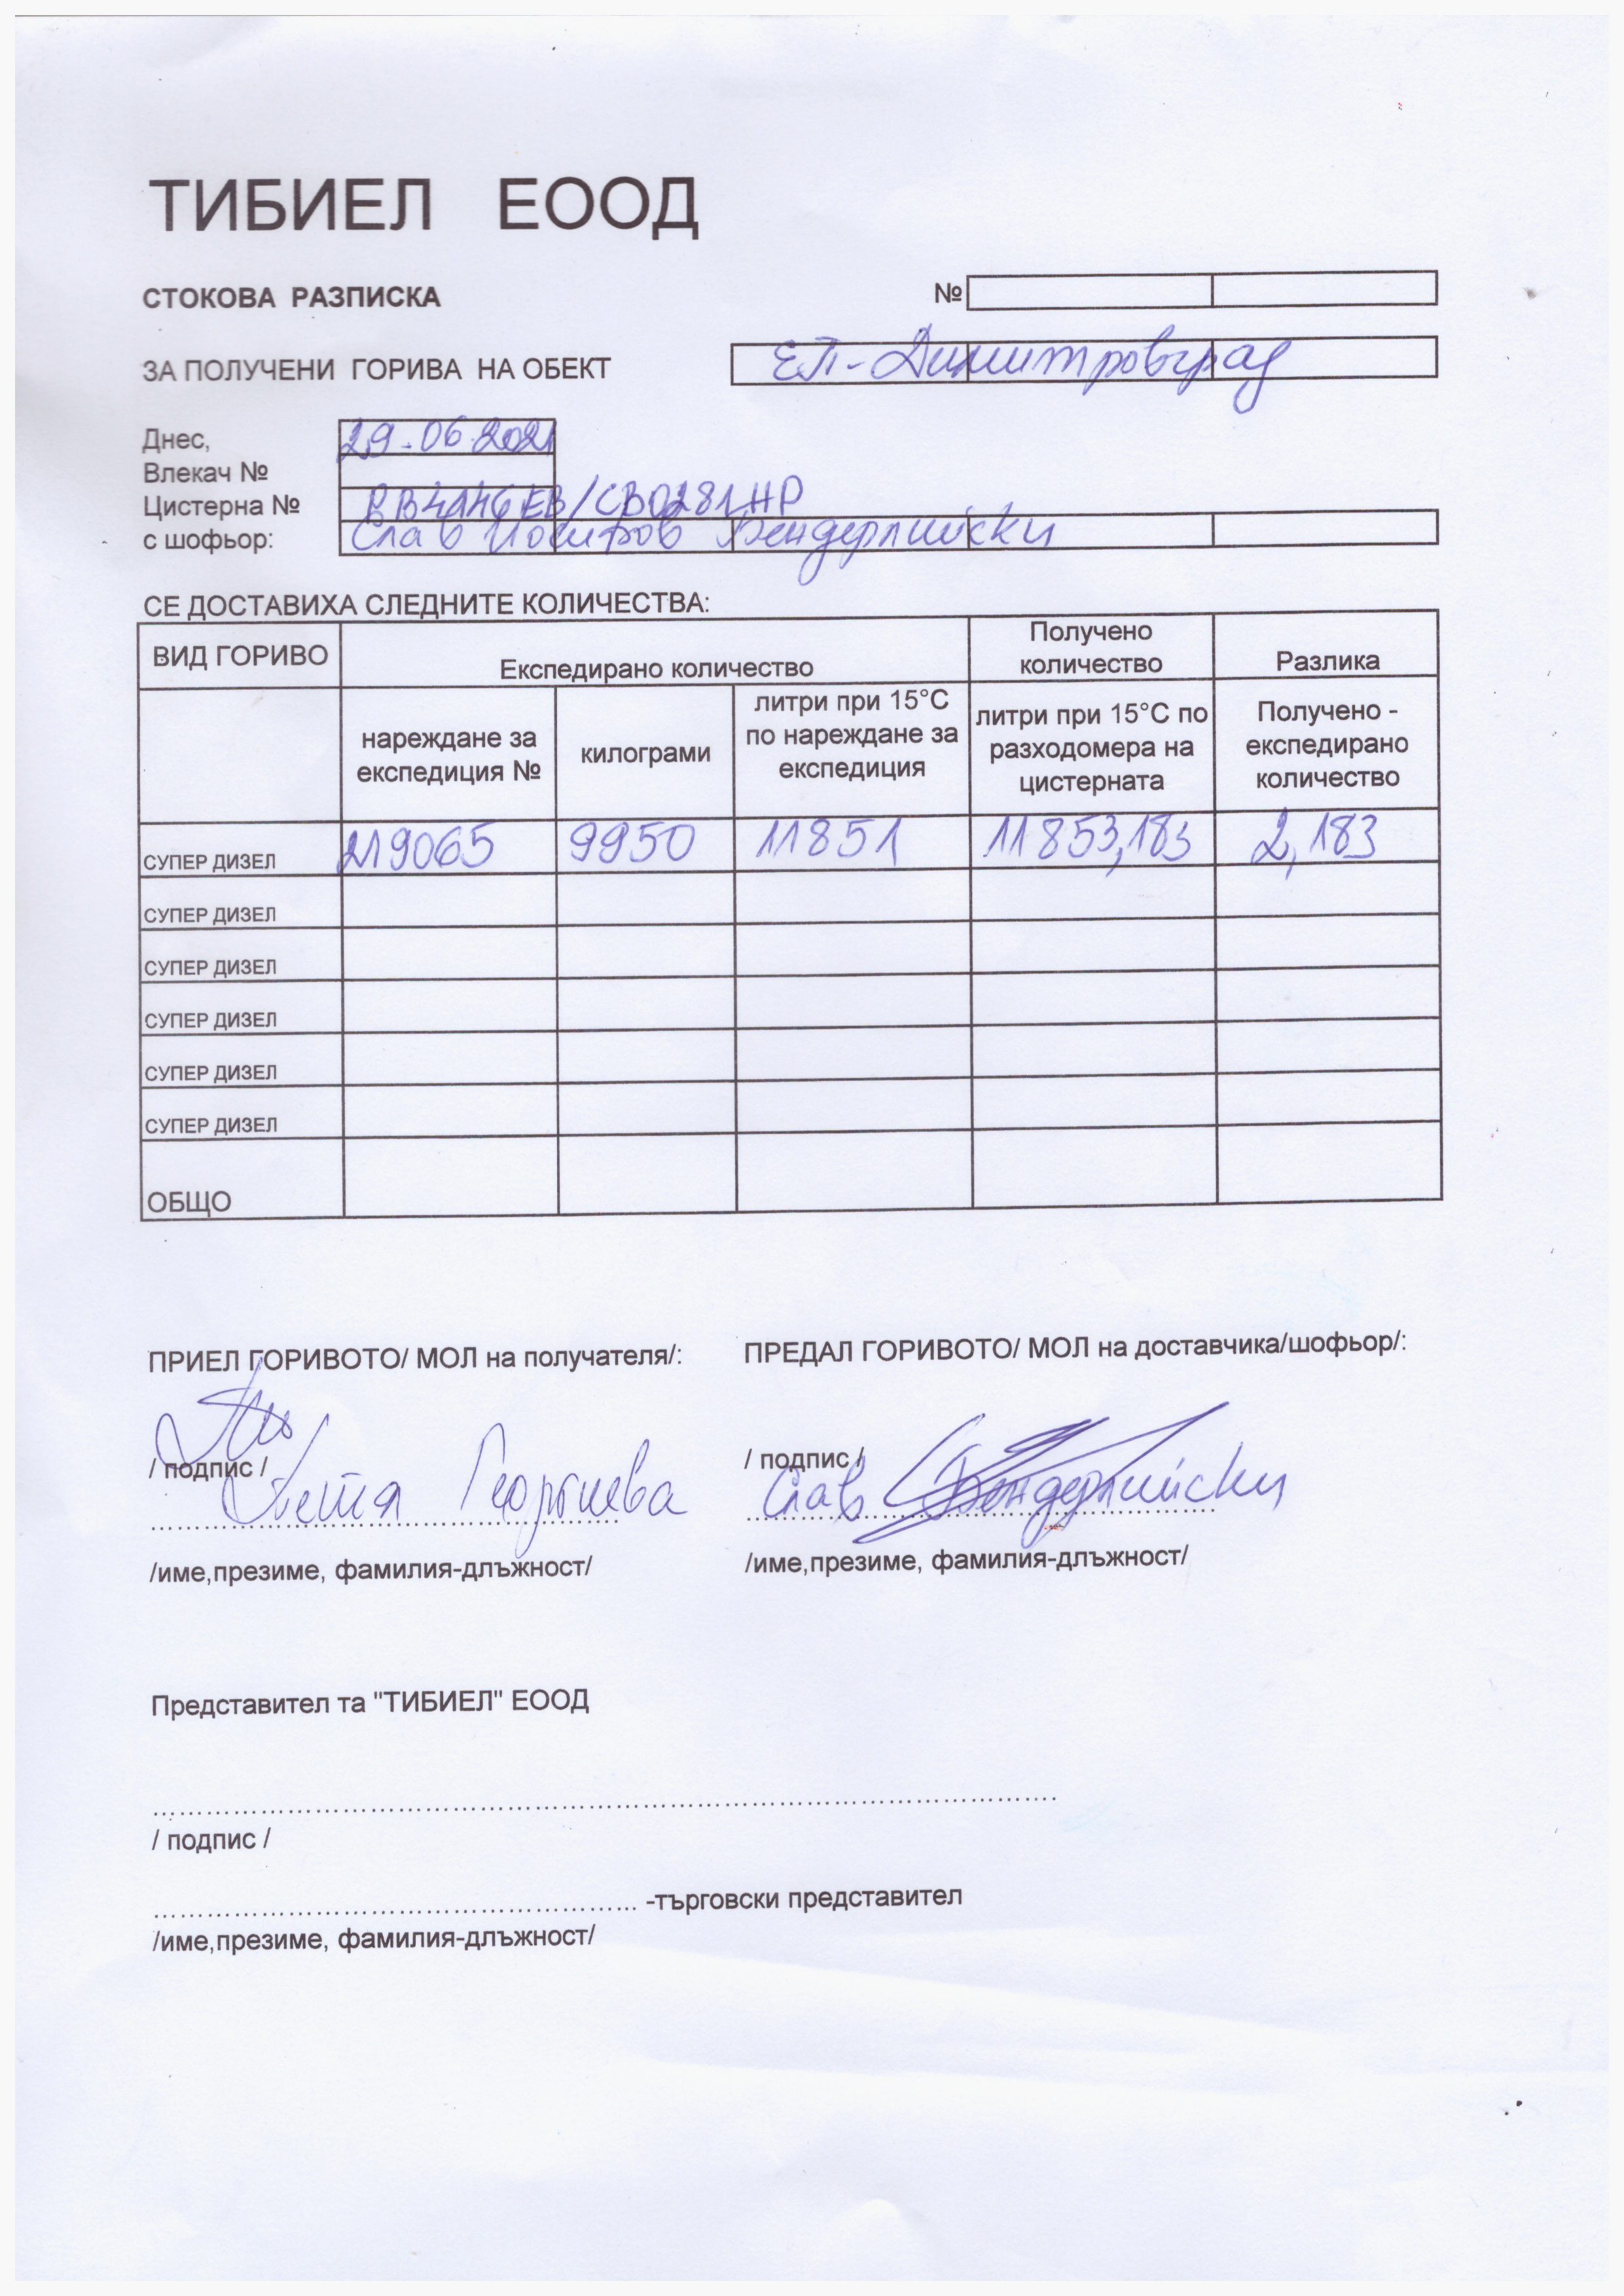 ТИБИЕЛ ЕООД
СТОКОВА РАЗПИСКА №
ЗА ПОЛУЧЕНИ ГОРИВА НА ОБЕКТ ЕП-Димитровград
Днес, 29.06.2021
Влекач №
Цистерна № /СВ0281НР
с шофьор: Слав Бендерлийски
СЕ ДОСТАВИХА СЛЕДНИТЕ КОЛИЧЕСТВА:
ВИД ГОРИВО Експедирано количество Получено количество Разлика
нареждане за експедиция № килограми литри при 15°C по нареждане за експедиция литри при 15°C по разходомера на цистерната Получено - експедирано количество
СУПЕР ДИЗЕЛ 219065 9950 11851 11853,183 2,183
СУПЕР ДИЗЕЛ
СУПЕР ДИЗЕЛ
СУПЕР ДИЗЕЛ
СУПЕР ДИЗЕЛ
СУПЕР ДИЗЕЛ
ОБЩО
ПРИЕЛ ГОРИВОТО/ МОЛ на получателя/: ПРЕДАЛ ГОРИВОТО/ МОЛ на доставчика/шофьор/:
/ подпис / / подпис /
Петя Георгиева Слав Бендерлийски
/име,презиме, фамилия-длъжност/ /име,презиме, фамилия-длъжност/
Представител та "ТИБИЕЛ" ЕООД
/ подпис /
-търговски представител
/име,презиме, фамилия-длъжност/